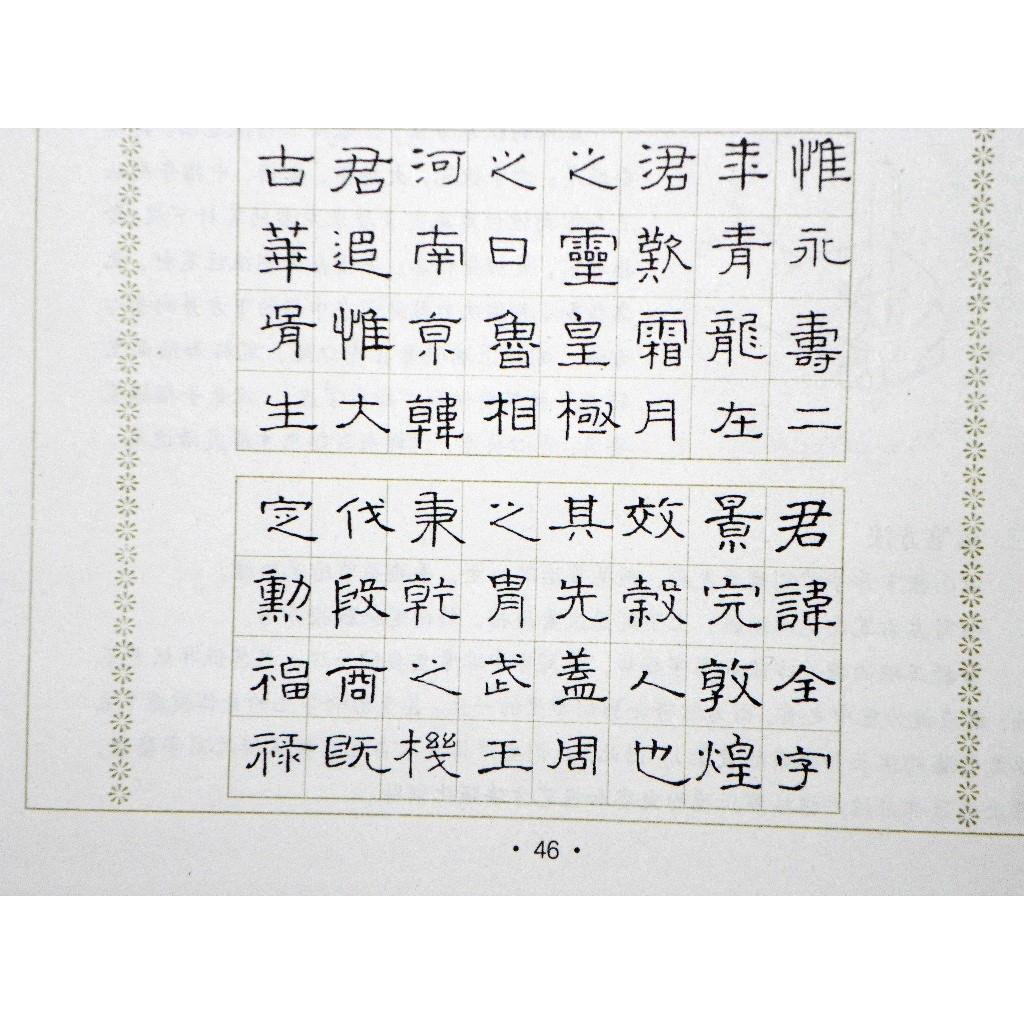 惟永壽二
年青龍在
涒歎霜月
之靈皇極
之日魯相
河南京韓
君追惟大
古華胥生
君諱全字
景完敦煌
效穀人也
其先蓋周
之胄武王
秉乾之機
伐殷商既
定勳福祿
• 46 •